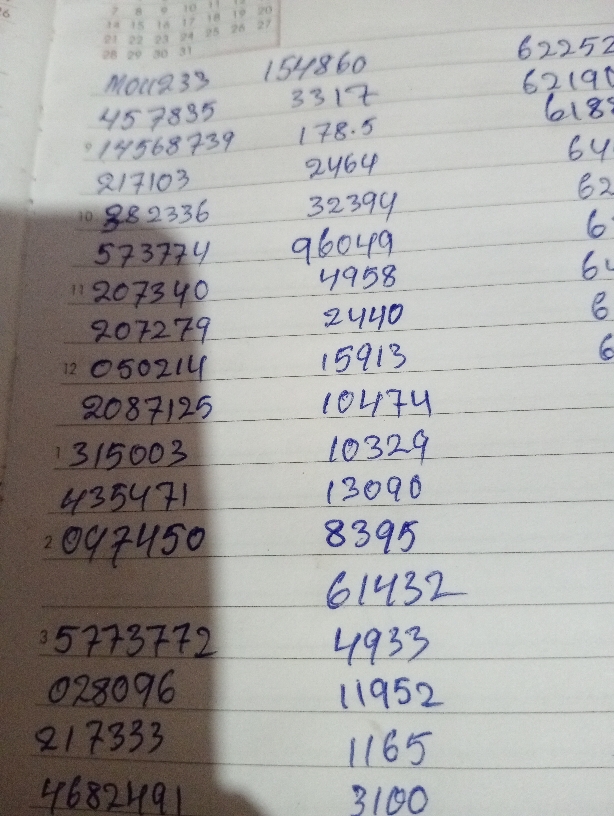 7 8 9 10 11 12
14 15 16 17 18 19 20
21 22 23 24 25 26 27
28 29 30 31
154860 62252
457835 3317 6219
9 14568739 178.5 618
217103 2464 64
10 282336 32394 62
573774 96049 6
11 207340 4958 64
207279 2440 6
12 050214 15913 6
2087125 10474
1 315003 10329
435471 13090
2 097450 8395
61432
3 5773772 4933
028096 11952
217333 1165
4682491 3100